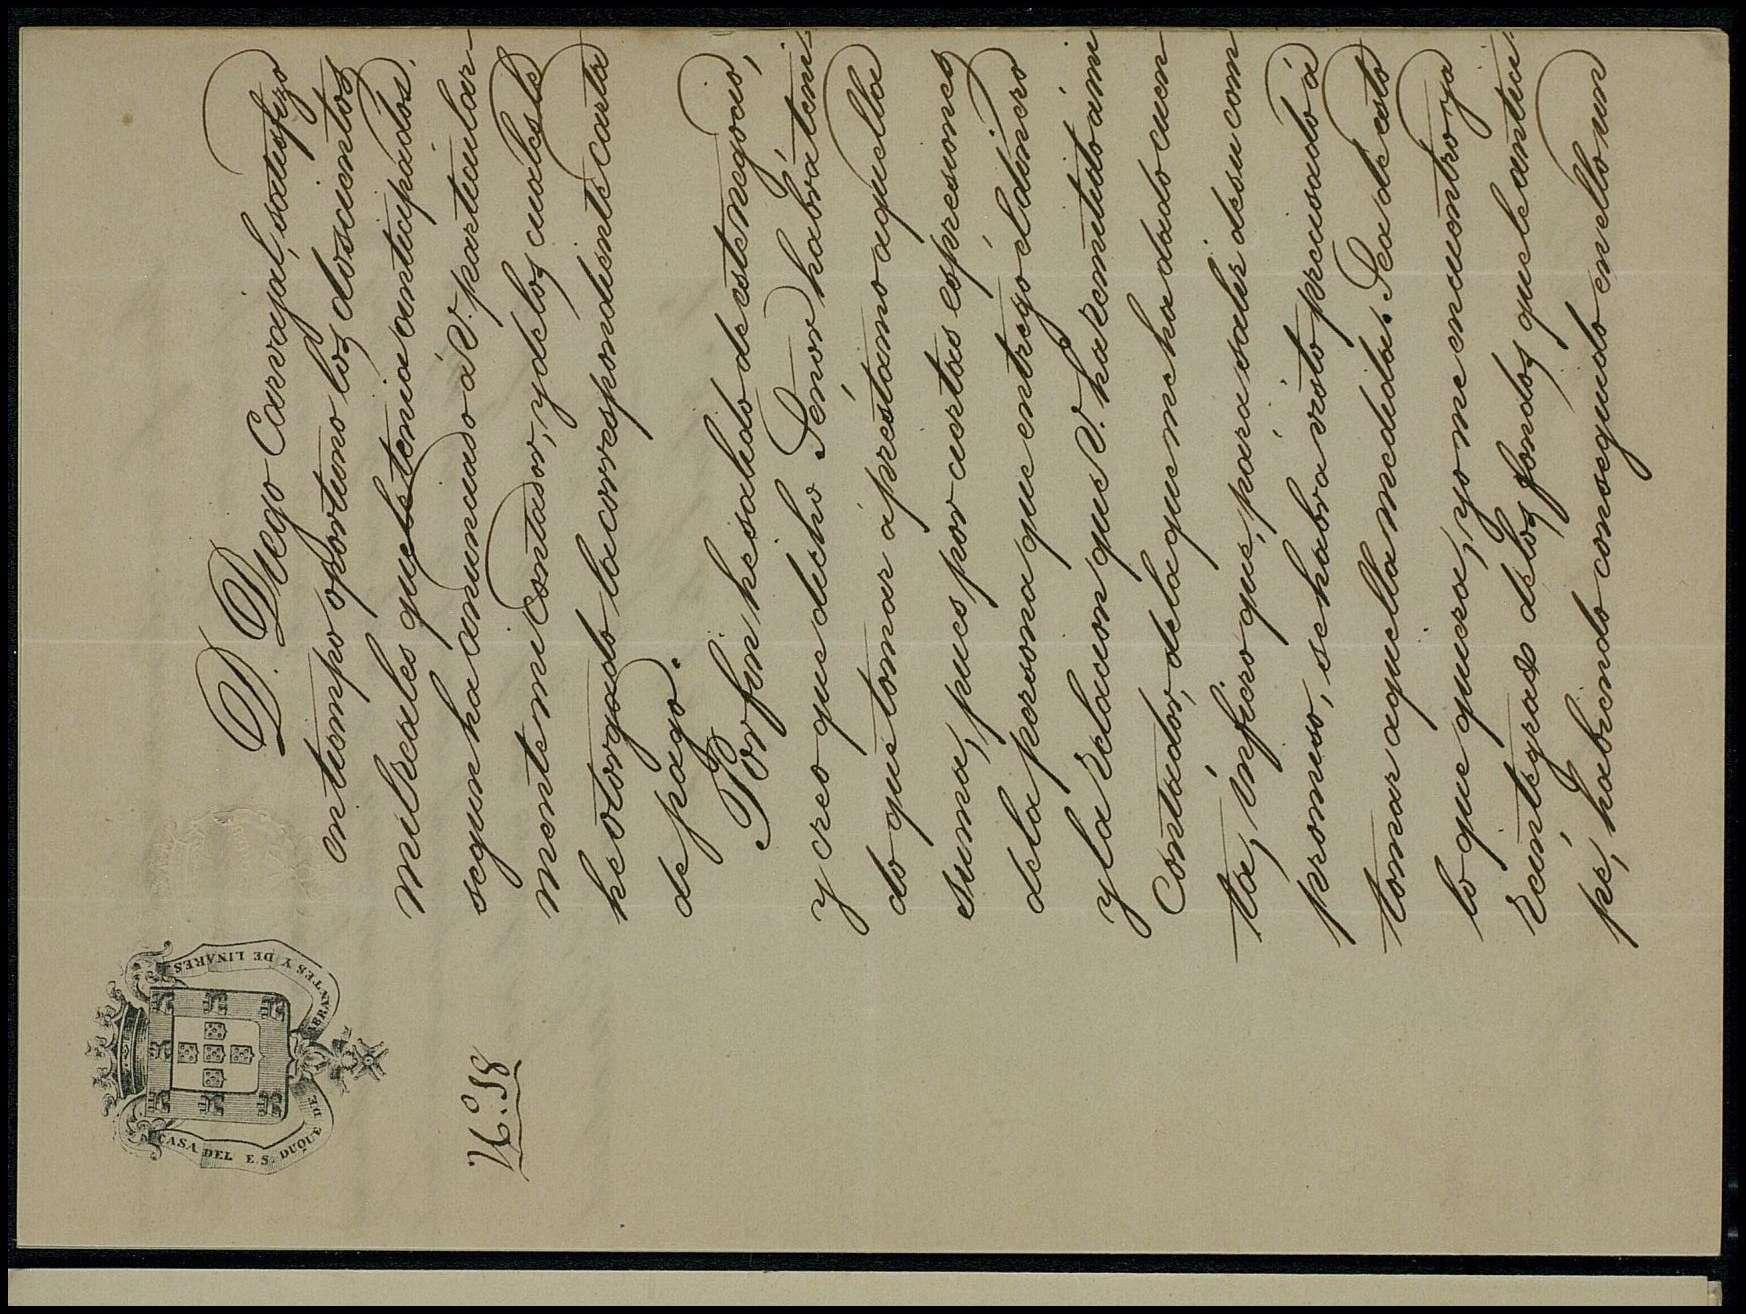 CASA DEL E. S. DUQUE DE ABRANTES Y DE LINARES.
N.º 58
D. Diego Carvajal, satisfizo
en tiempo oportuno los doscientos
mil reales que le tenia anticipados,
segun ha anunciado á V. particular-
mente mi Contador, y de los cuales le
he otorgado la correspondiente carta
de pago.
Por fin he salido de este negocio,
y creo que dicho Señor habrá teni-
do que tomar á préstamo aquella
suma, pues por ciertas espresiones
de la persona que entregó el dinero
y la relacion que V. ha remitido á mi
Contador, de la que me ha dado cuen
ta, infiero que, para salir de su com
promiso, se habrá visto precisado á
tomar aquella medida. Sea de esto
lo que quiera, yo me encuentro ya
reintegrado de los fondos que le antici
pé, habiendo conseguido en ello un